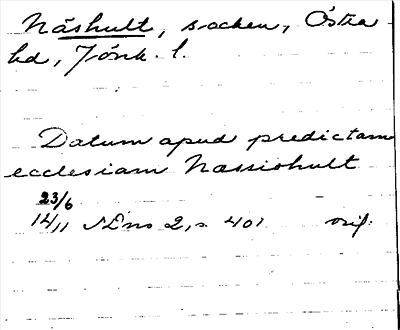 Näshult, socken, Östra
hd, Jönk. l.
Datum apud predictam
ecclesiam Nassiohult
23/6
14/11 SDns 2, s 401 orig.